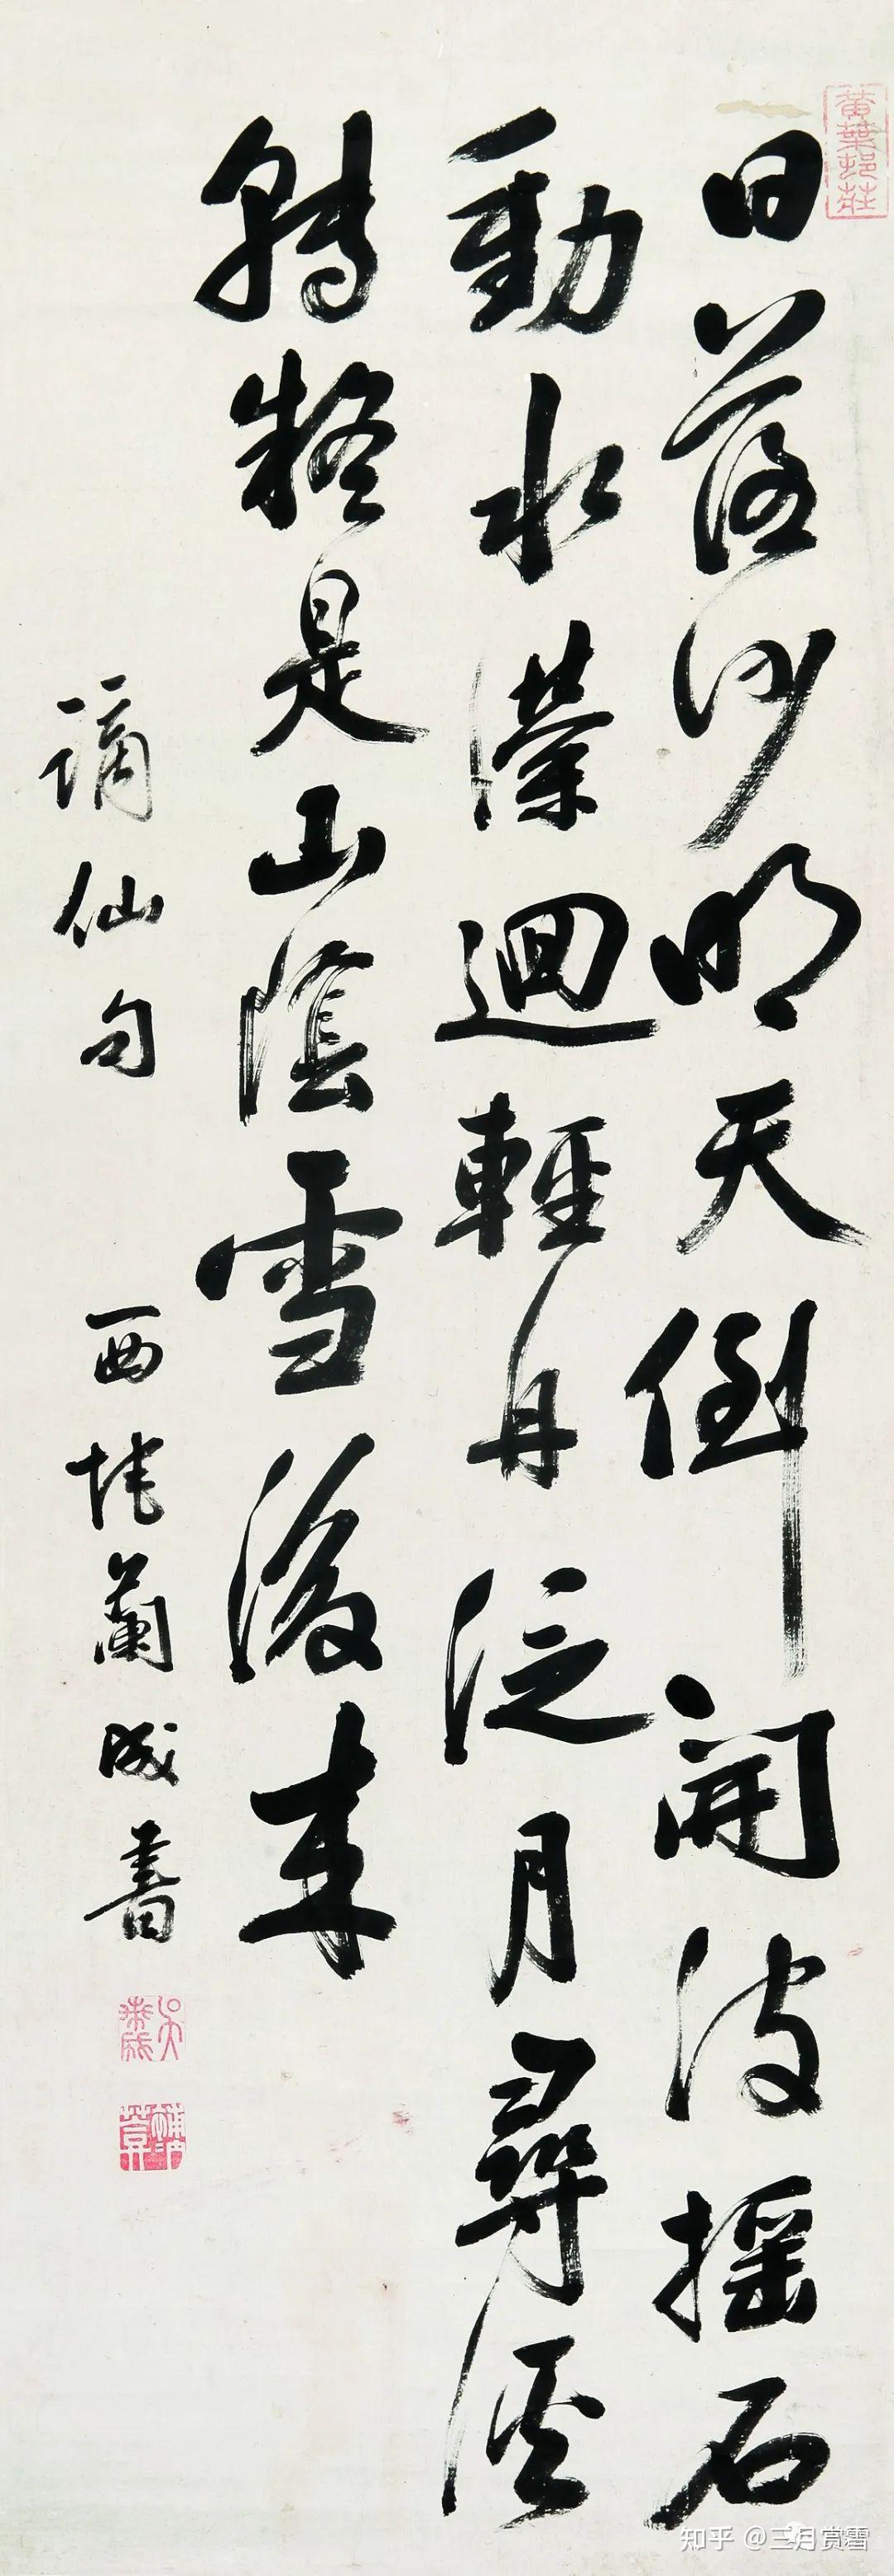 黄葉邨莊
日落沙明天倒開波揺石
動水濚迴輕舟泛月尋溪
轉疑是山陰雪後來
謫仙句 西垞蘭成書
知乎 @三月赏雪